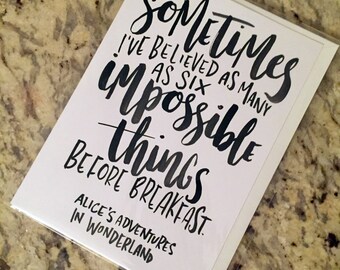 SOMETIMES
I'VE BELIEVED AS MANY
AS SIX
impossible
things
BEFORE BREAKFAST.
ALICE'S ADVENTURES
IN WONDERLAND